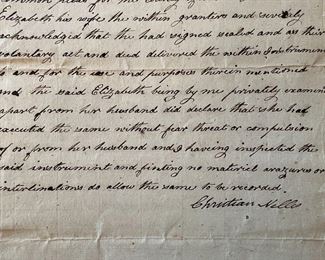 Elizabeth his wife the within grantors and severly
acknowledgid that the had signed sealed and as their
voluntary act and deed delivered the within Instrument
to and for the use and purposes therein mentioned
and the said Elizabeth being by me privately examin
apart from her husband did declare that she had
executed the same without fear threat or compulsion
of or from her husband and I having inspected the
said instrument and finding no material arazures or
interlinations do allow the same to be recorded.
Christian Nells